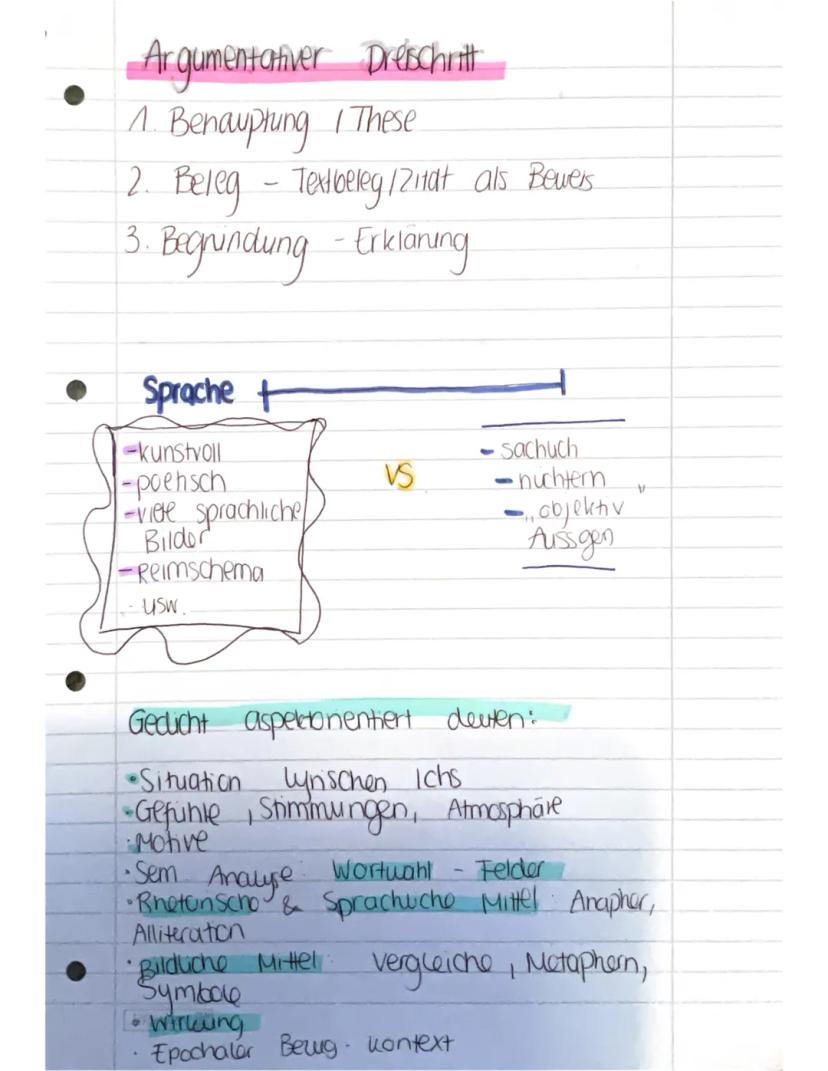 Argumentativer Dreischritt
1. Behauptung / These
2. Beleg - Textbeleg/Zitat als Beweis
3. Begründung - Erklärung
Sprache
-kunstvoll
-poetisch
-viele sprachliche
Bilder
-Reimschema
- usw.
VS
- sachlich
- nüchtern
- „objektiv"
Aussgen
Gedicht aspektorientiert deuten:
•Situation lyrischen Ichs
•Gefühle, Stimmungen, Atmosphäre
•Motive
•Sem Analyse: Wortwahl - Felder
•Rhetorische & Sprachliche Mittel: Anapher,
Alliteration
•Bildliche Mittel: Vergleiche, Metaphern,
Symbole
•Wirkung
• Epochaler Bezug. Kontext